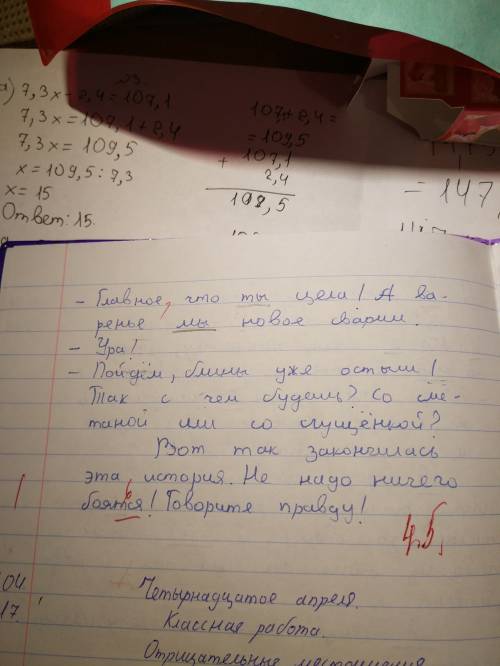 а) 7,3х - 2,4 = 107,1
7,3х = 107,1 + 2,4
7,3х = 109,5
х = 109,5 : 7,3
х = 15
Ответ: 15.
107+2,4=
= 109,5
+ 107,1
2,4
109,5
= 147,
- Главное, что ты цела! А ва-
ренье мы новое сварим.
- Ура!
- Пойдём, блины уже остыли!
Так с чем будешь? Со сме-
таной или со сгущёнкой?
Вот так закончилась
эта история. Не надо ничего
боятся! Говорите правду!
ь
4,5,
04.
17.
Четырнадцатое апреля.
Классная работа.
Отрицательные местоимения